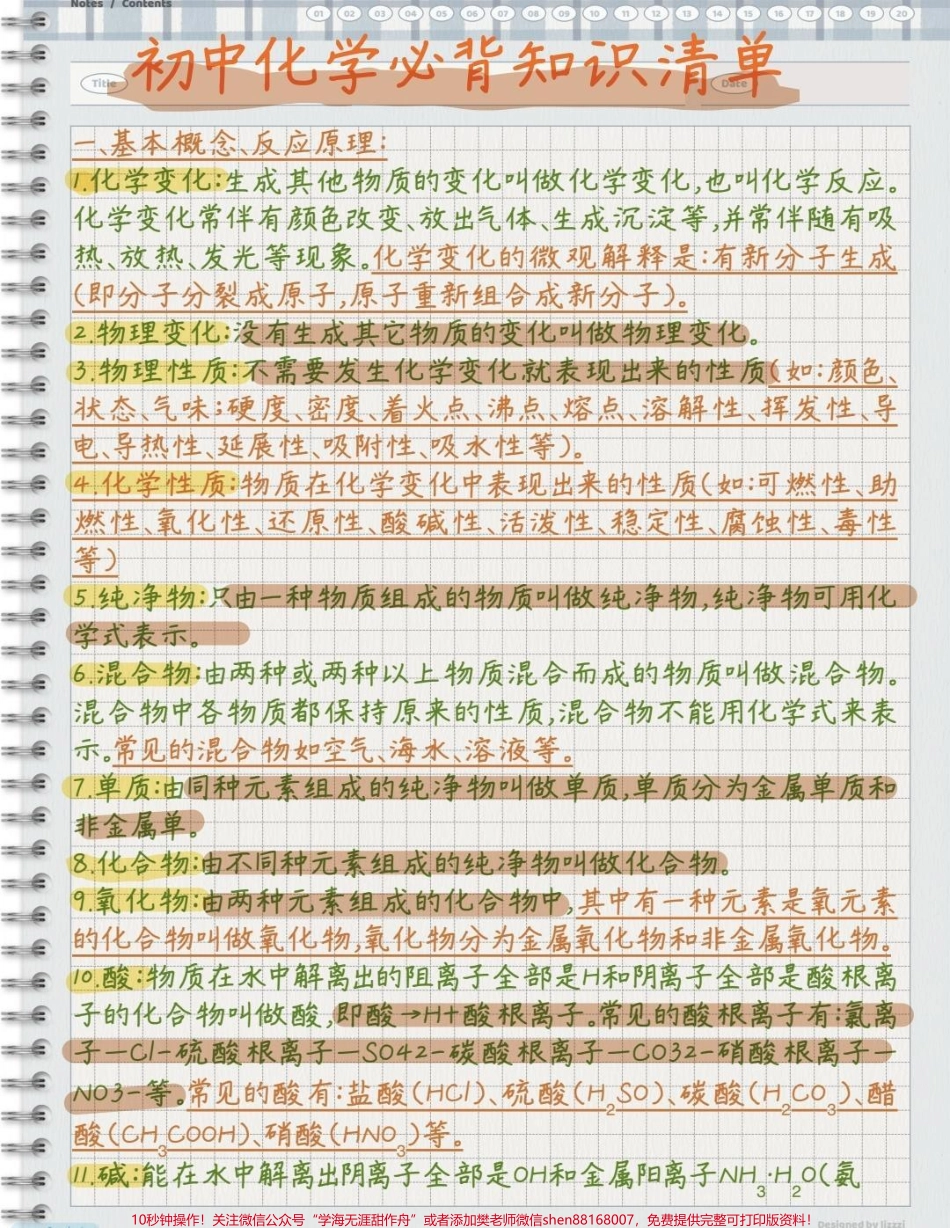 Notes / Contents
01 02 03 04 05 06 07 08 09 10 11 12 13 14 15 16 17 18 19 20
初中化学必背知识清单
Title
Date
一、基本概念、反应原理:
1.化学变化:生成其他物质的变化叫做化学变化,也叫化学反应。
化学变化常伴有颜色改变、放出气体、生成沉淀等,并常伴随有吸
热、放热、发光等现象。化学变化的微观解释是:有新分子生成
(即分子分裂成原子,原子重新组合成新分子)。
2.物理变化:没有生成其它物质的变化叫做物理变化。
3.物理性质:不需要发生化学变化就表现出来的性质(如:颜色、
状态、气味;硬度、密度、着火点、沸点、熔点、溶解性、挥发性、导
电、导热性、延展性、吸附性、吸水性等)。
4.化学性质:物质在化学变化中表现出来的性质(如:可燃性、助
燃性、氧化性、还原性、酸碱性、活泼性、稳定性、腐蚀性、毒性
等)
5.纯净物:只由一种物质组成的物质叫做纯净物,纯净物可用化
学式表示。
6.混合物:由两种或两种以上物质混合而成的物质叫做混合物。
混合物中各物质都保持原来的性质,混合物不能用化学式来表
示。常见的混合物如空气、海水、溶液等。
7.单质:由同种元素组成的纯净物叫做单质,单质分为金属单质和
非金属单。
8.化合物:由不同种元素组成的纯净物叫做化合物。
9.氧化物:由两种元素组成的化合物中,其中有一种元素是氧元素
的化合物叫做氧化物,氧化物分为金属氧化物和非金属氧化物。
10.酸:物质在水中解离出的阻离子全部是H和阴离子全部是酸根离
子的化合物叫做酸,即酸→H+酸根离子。常见的酸根离子有:氯离
子—Cl-硫酸根离子—SO42-碳酸根离子—CO32-硝酸根离子—
NO3-等。常见的酸有:盐酸(HCl)、硫酸(H₂SO)、碳酸(H₂CO₃)、醋
酸(CH₃COOH)、硝酸(HNO₃)等。
11.碱:能在水中解离出阴离子全部是OH和金属阳离子NH₃·H₂O(氨
10秒钟操作！关注微信公众号“学海无涯甜作舟”或者添加樊老师微信shen88168007，免费提供完整可打印版资料！
Designed by lizzzi